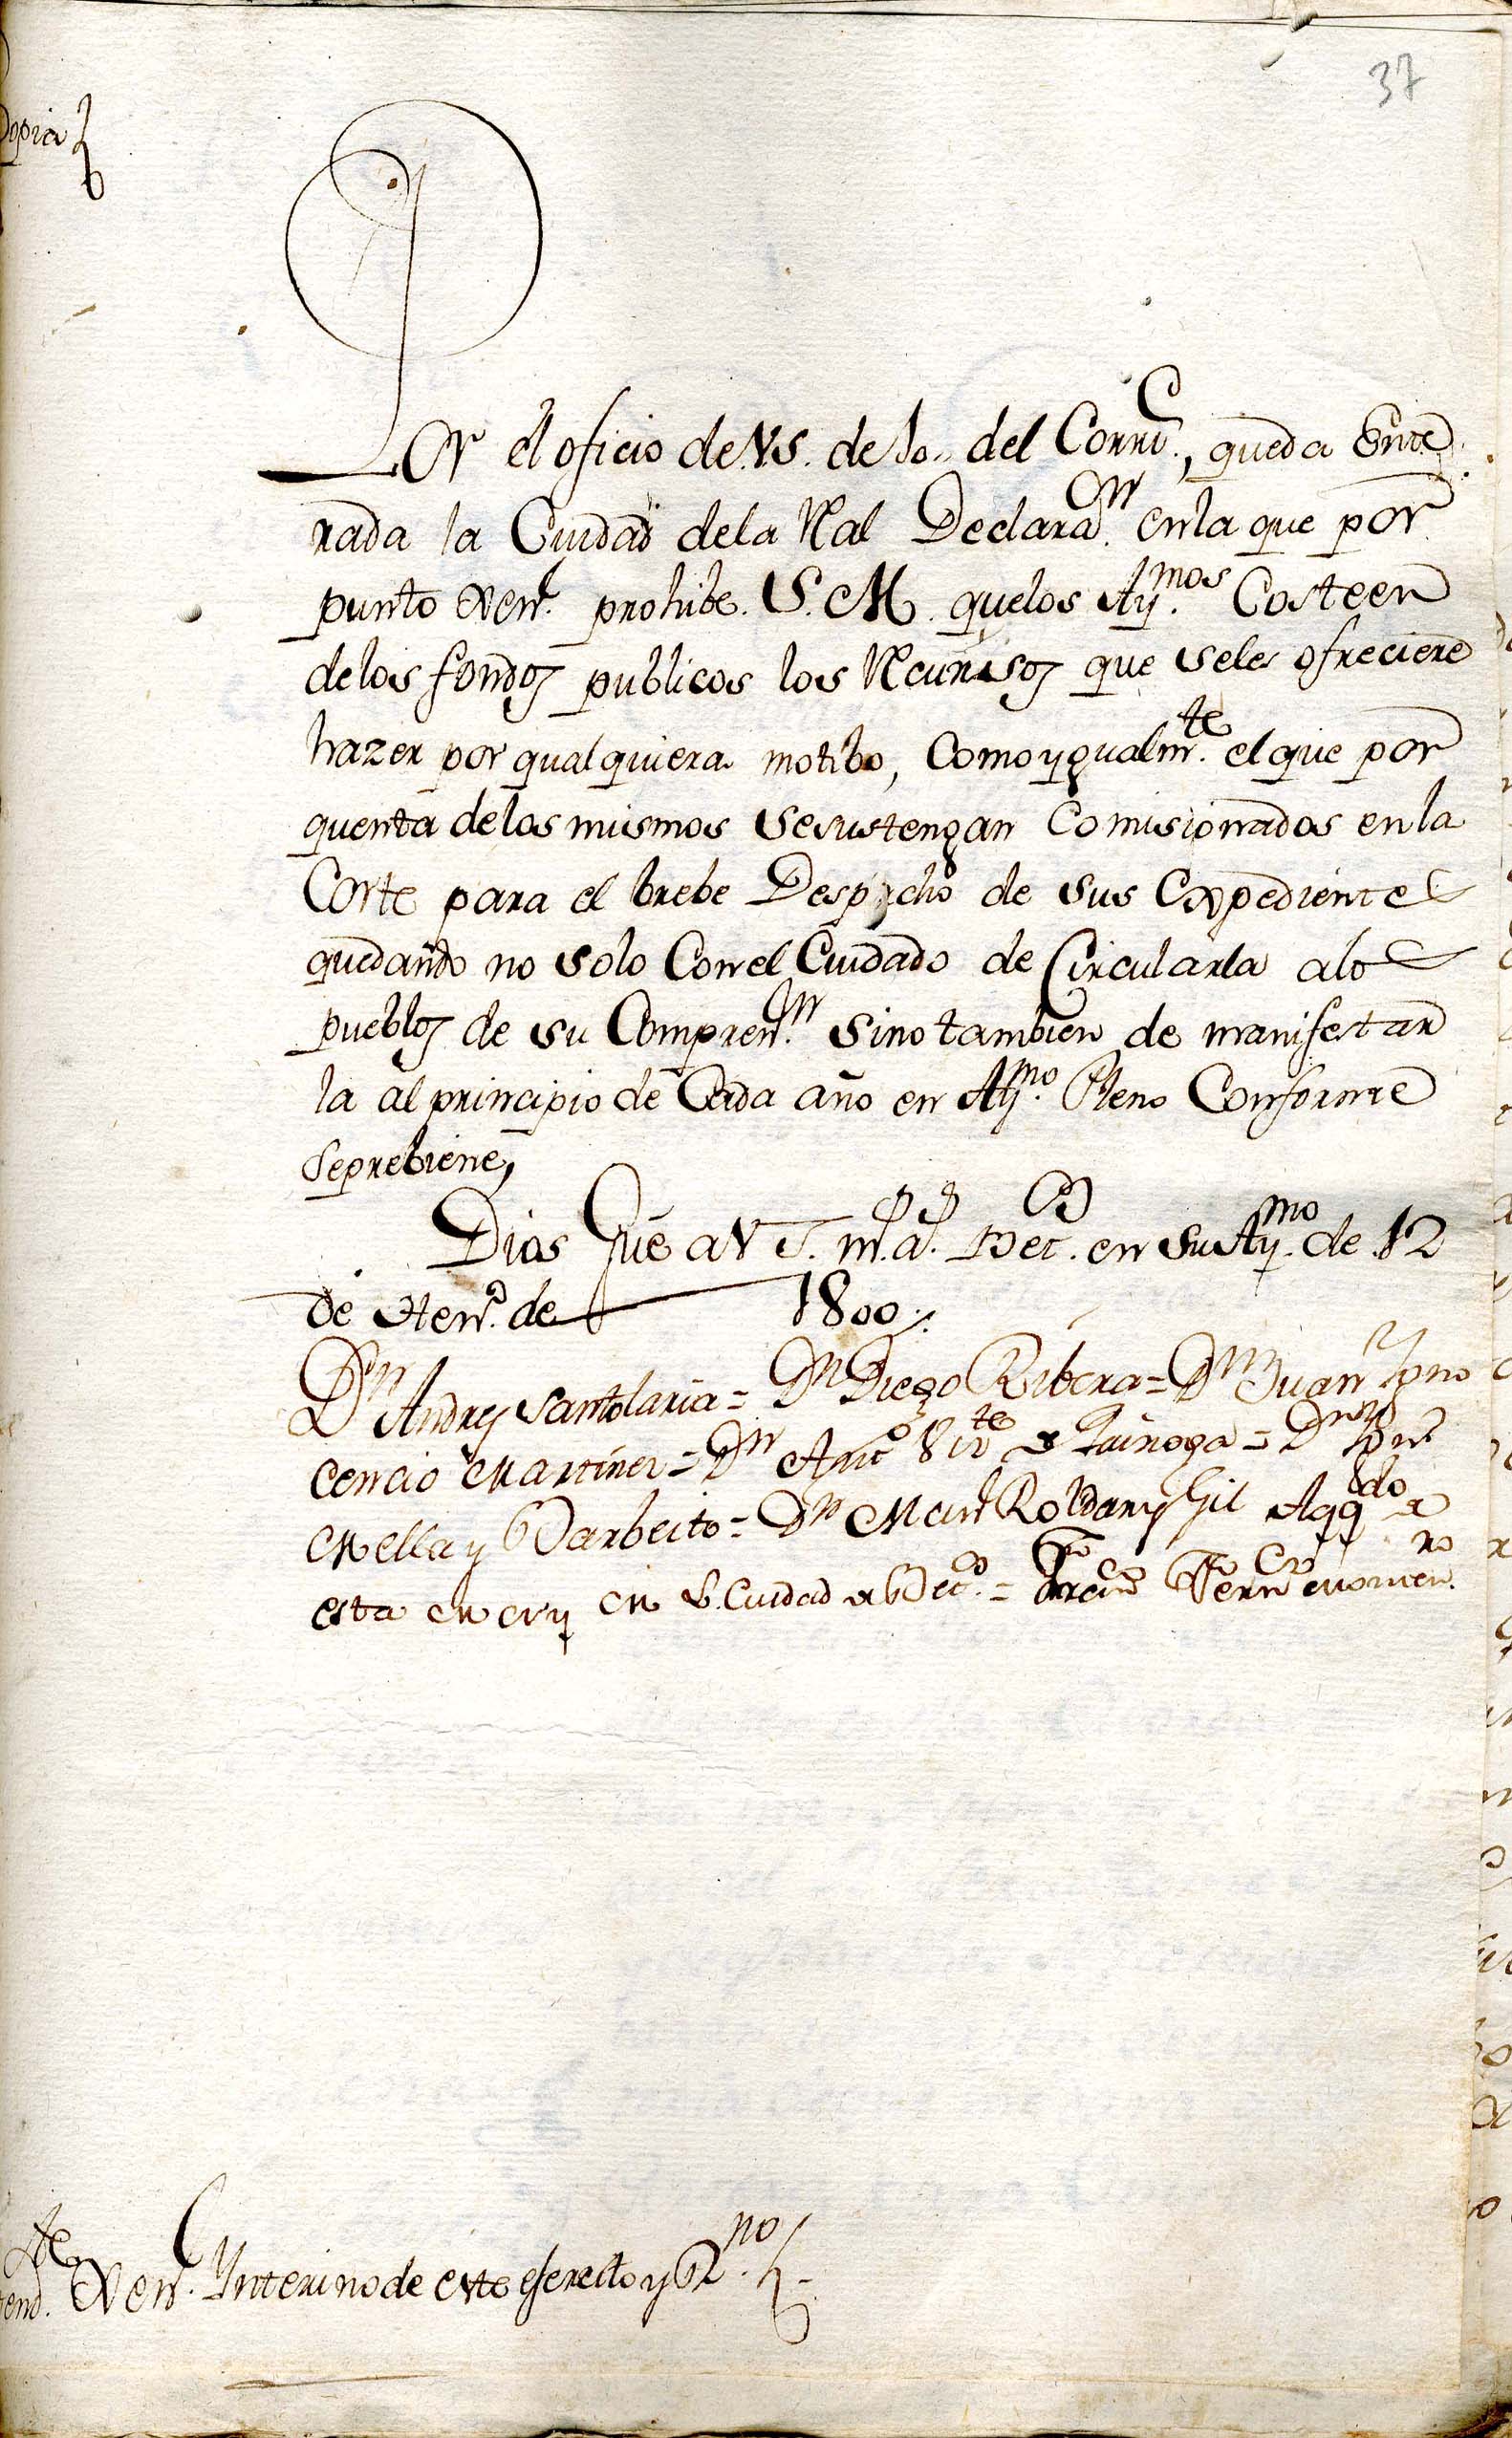 37
Copia
Por el oficio de V.S. de 10,, del Corrte., queda Ente
rada la Ciudad dela Ral Declaraon. enla que por
punto Xenl. prohibe. S.M. quelos Aymos. Costeen
delos fondos publicos los Recursos que seles ofreciere
hazer por qualquiera motibo, Como ygualmte. el que por
quenta delos mismos se sustengan Comisionados en la
Corte para el brebe Despacho de sus Expedientes
quedando no solo Con el Cuidado de Circularla alos
pueblos de su Compreno​n. sino tambien de manifestar
la al principio de Cada año en Aymo. Pleno Conforme
se prebiene,
Dios Gue a V S. ms. as. Bet. en su Aymo. de 12
de Heno. de 1800,,
Dn Andres Santolaria = Dn Diego Ribera = Dn Juan Yno
cencio Martinez = Dn Anto Vizte de Quiroga = Dn
Mella y Barbeito = Dn Manl Roldan y Gil
esta M. N. y M. L. Ciudad de Beto. =
tend. Xenl. Ynterino de este exercito y Rno.